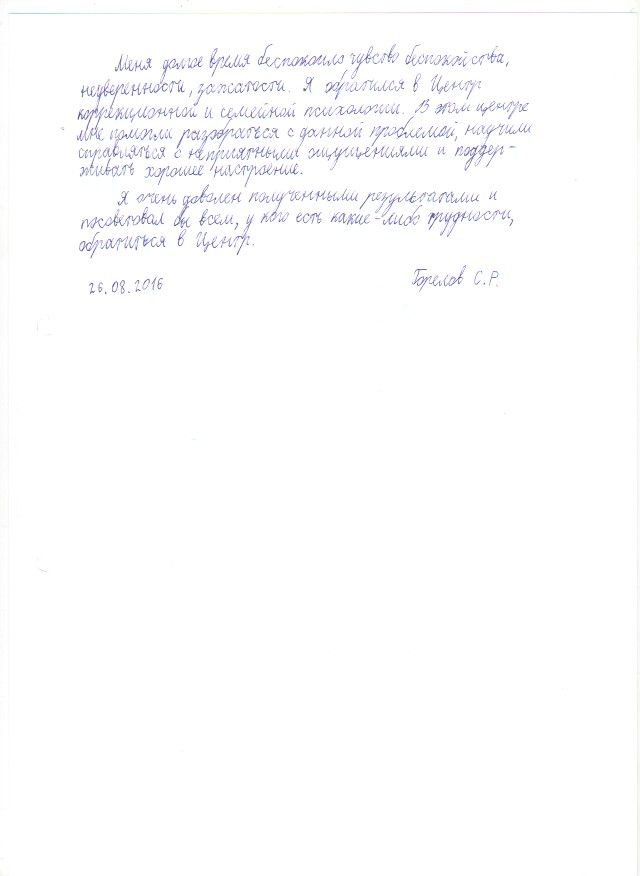 Меня долгое время беспокоило чувство беспокойства,
неуверенности, зажатости. Я обратился в Центр
коррекционной и семейной психологии. В этом центре
мне помогли разобраться с данной проблемой, научили
справляться с неприятными ощущениями и поддер-
живать хорошее настроение.
Я очень доволен полученными результатами и
посоветовал бы всем, у кого есть какие-либо трудности,
обратиться в Центр.
26.08.2016 Горелов С.Р.